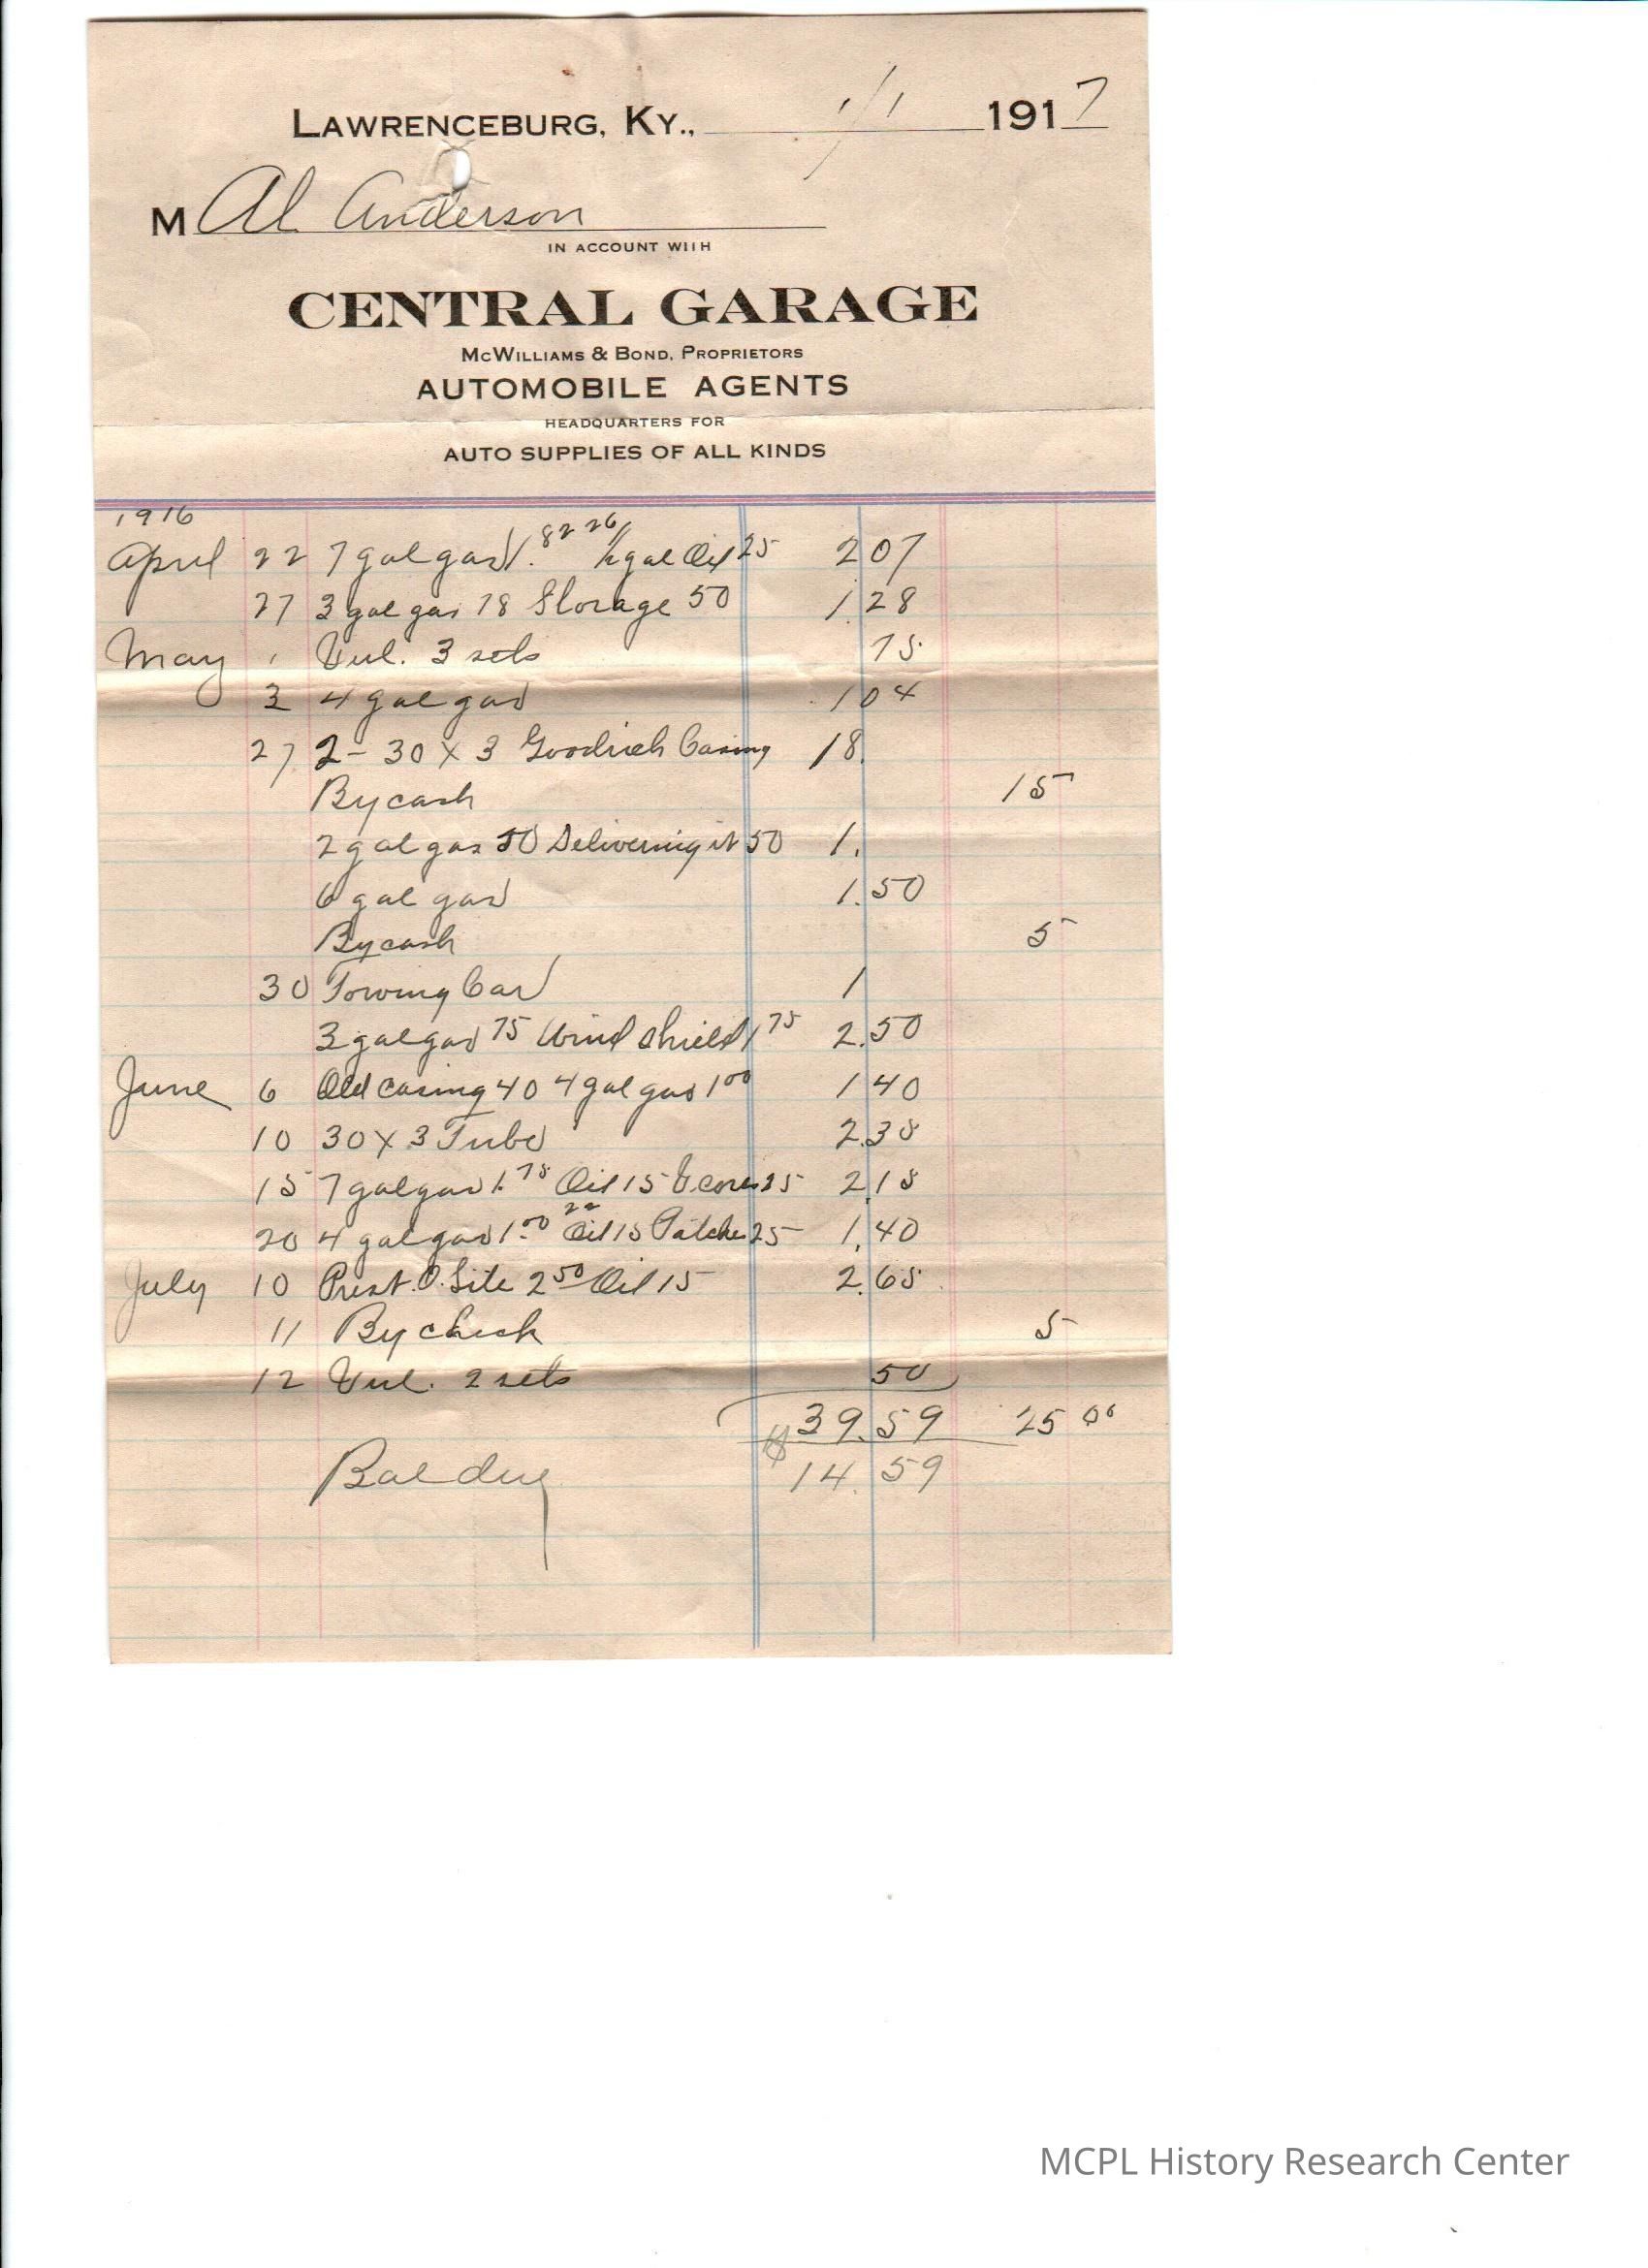 LAWRENCEBURG, KY., 1/1 1917
M Al Anderson
IN ACCOUNT WITH
CENTRAL GARAGE
McWILLIAMS & BOND, PROPRIETORS
AUTOMOBILE AGENTS
HEADQUARTERS FOR
AUTO SUPPLIES OF ALL KINDS
1916
April 22 7 gal gas 1.82 26 1/2 gal Oil 25 2 07
27 3 gal gas 78 Storage 50 1.28
May 1 Vul. 3 sets 75
3 4 gal gas 1 04
27 2 - 30 X 3 Goodrich Casing 18.
By cash 15
2 gal gas 50 Delivering it 50 1.
6 gal gas 1.50
By cash 5
30 Towing Car 1
3 gal gas 75 Wind shield 1 75 2.50
June 6 Old casing 40 4 gal gas 1 00 1 40
10 30 X 3 Tube 2.35
15 7 gal gas 1.75 Oil 15 V cores 25 2.15
20 4 gal gas 1.00 22 Oil 15 Patches 25 1.40
July 10 Prest. O. Lite 2 50 Oil 15 2.65
11 By check 5
12 Vul. 2 sets 50
39.59 25 00
Bal due $14.59
MCPL History Research Center